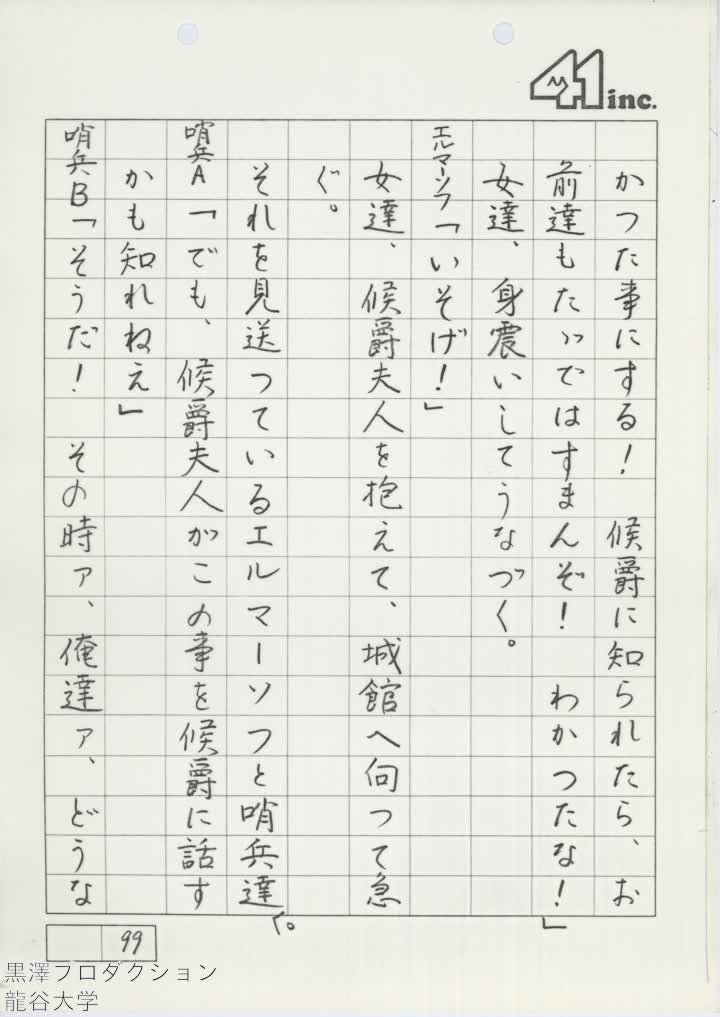 41 inc.
かつた事にする！　候爵に知られたら、お
前達もたゞではすまんぞ！　わかつたな！」
女達、身震いしてうなづく。
エルマーソフ「いそげ！」
女達、候爵夫人を抱えて、城館へ向つて急
ぐ。
それを見送つているエルマーソフと哨兵達。
哨兵A「でも、候爵夫人がこの事を候爵に話す
かも知れねえ」
哨兵B「そうだ！　その時ァ、俺達ァ、どうな
99
黒澤プロダクション
龍谷大学